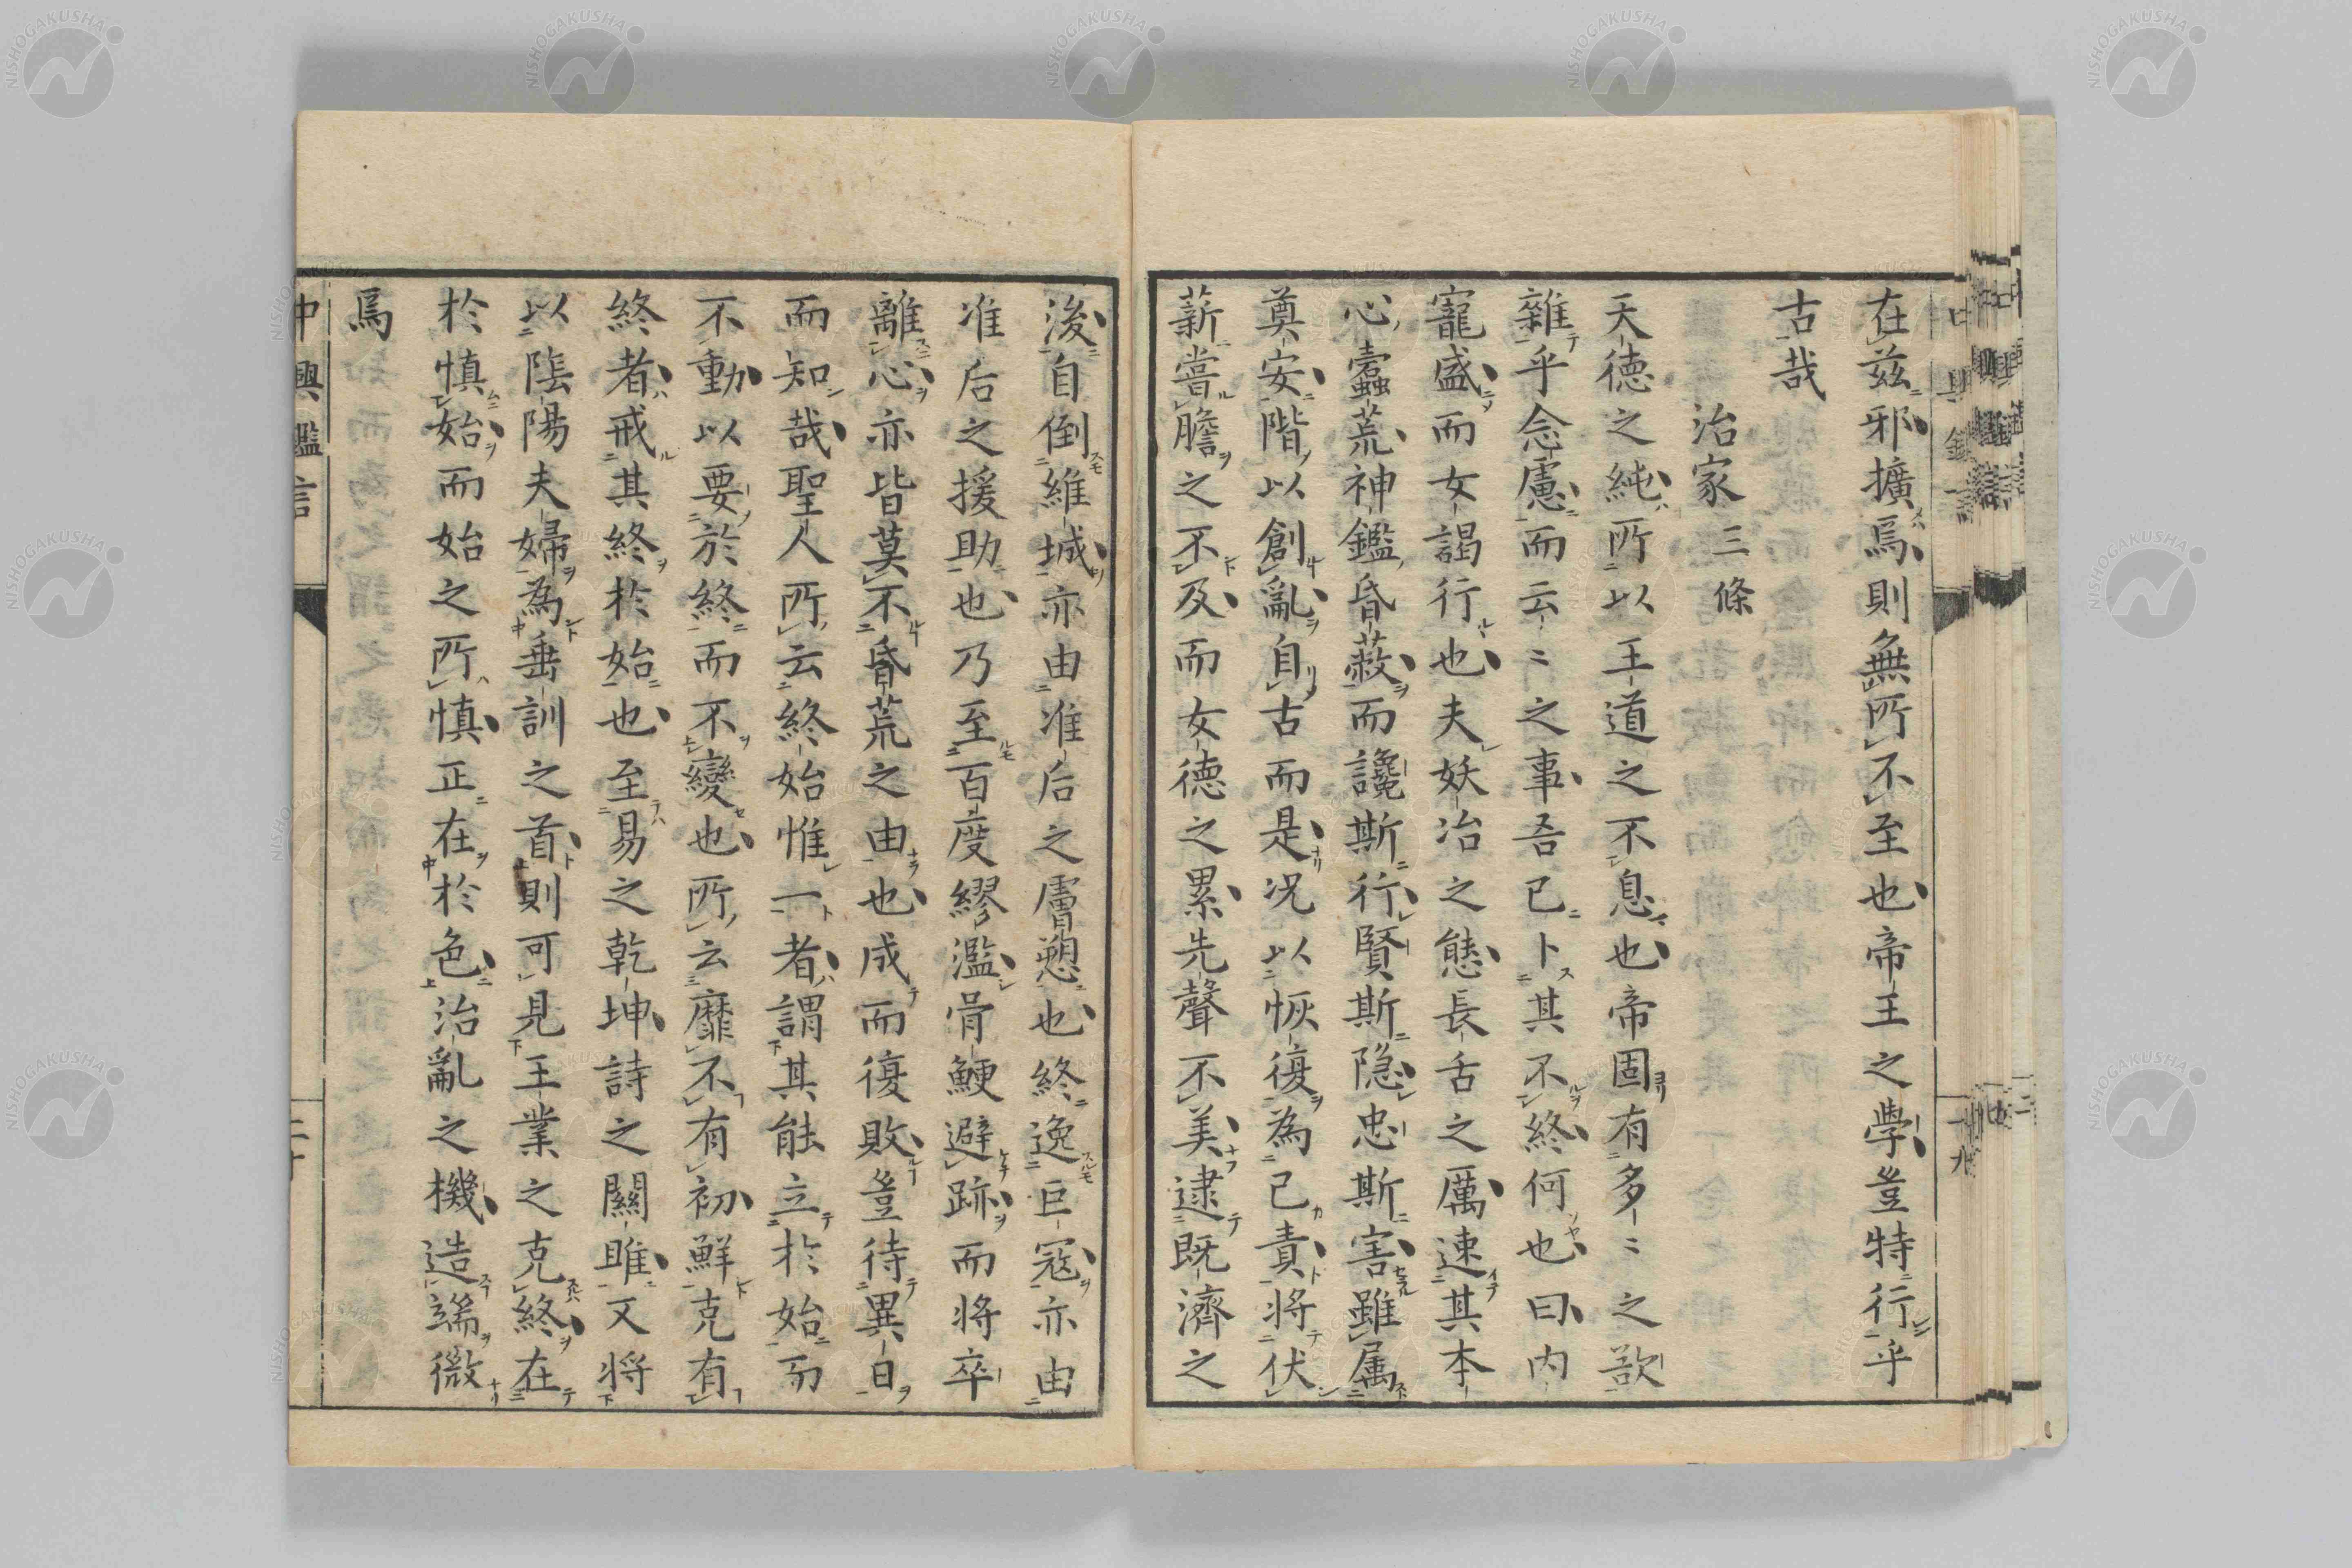 在茲邪擴焉則無所不至也帝王之學豈特行乎
古哉
治家三條
天德之純所以王道之不息也帝固有多〻之欲
雜乎念慮而云〻之事吾已卜其不終何也曰内
寵盛而女謁行也夫妖冶之態長舌之厲速其本
心蠧荒神鑑昏蔽而讒斯行賢斯隠忠斯害雖属
奠安階以創亂自古而是况以恢復為己責将伏
薪嘗膽之不及而女德之累先聲不美逮既濟之
後自倒維城亦由准后之膚愬也終逸巨寇亦由
准后之援助也乃至百度繆濫骨鯁避跡而将卒
離心亦皆莫不昏荒之由也成而復敗豈待異日
而知哉聖人所云終始惟一者謂其能立於始而
不動以要於終而不變也所云靡不有初鮮克有
終者戒其終於始也至易之乾坤詩之關雎又将
以陰陽夫婦為垂訓之首則可見王業之克終在
於慎始而始之所慎正在於色治亂之機造端微
焉
中興鑑言